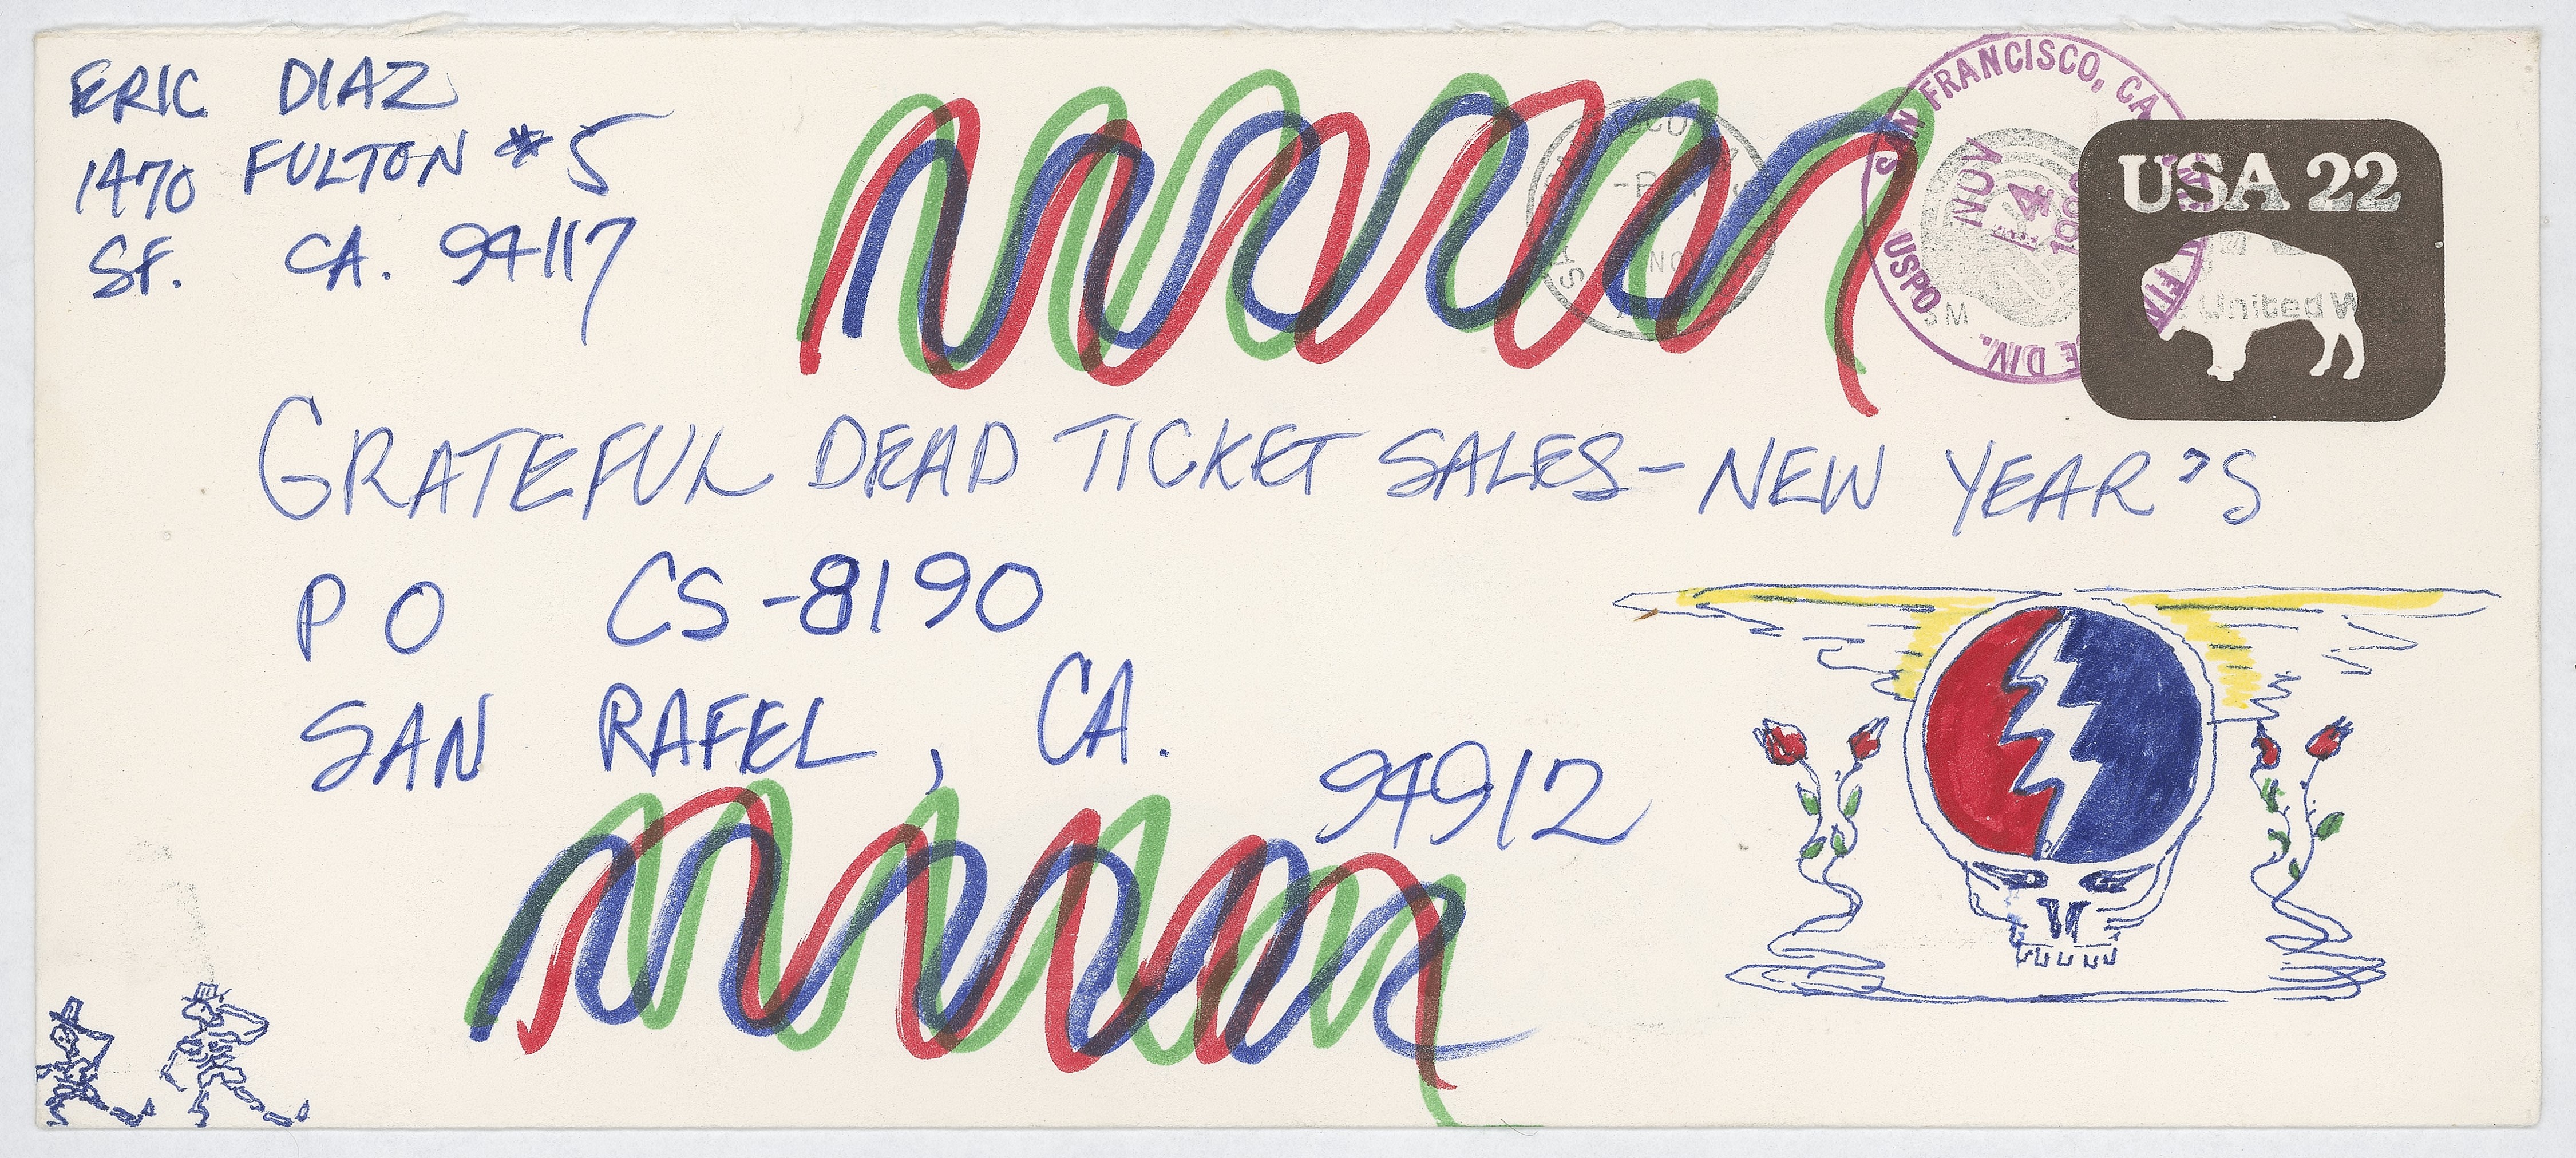 ERIC DIAZ
1470 FULTON #5
SF. CA. 94117
SAN FRANCISCO, CA
NOV 4
USPO
DIV.
USA 22
United Way
GRATEFUL DEAD TICKET SALES - NEW YEAR'S
PO CS-8190
SAN RAFEL, CA.
94912